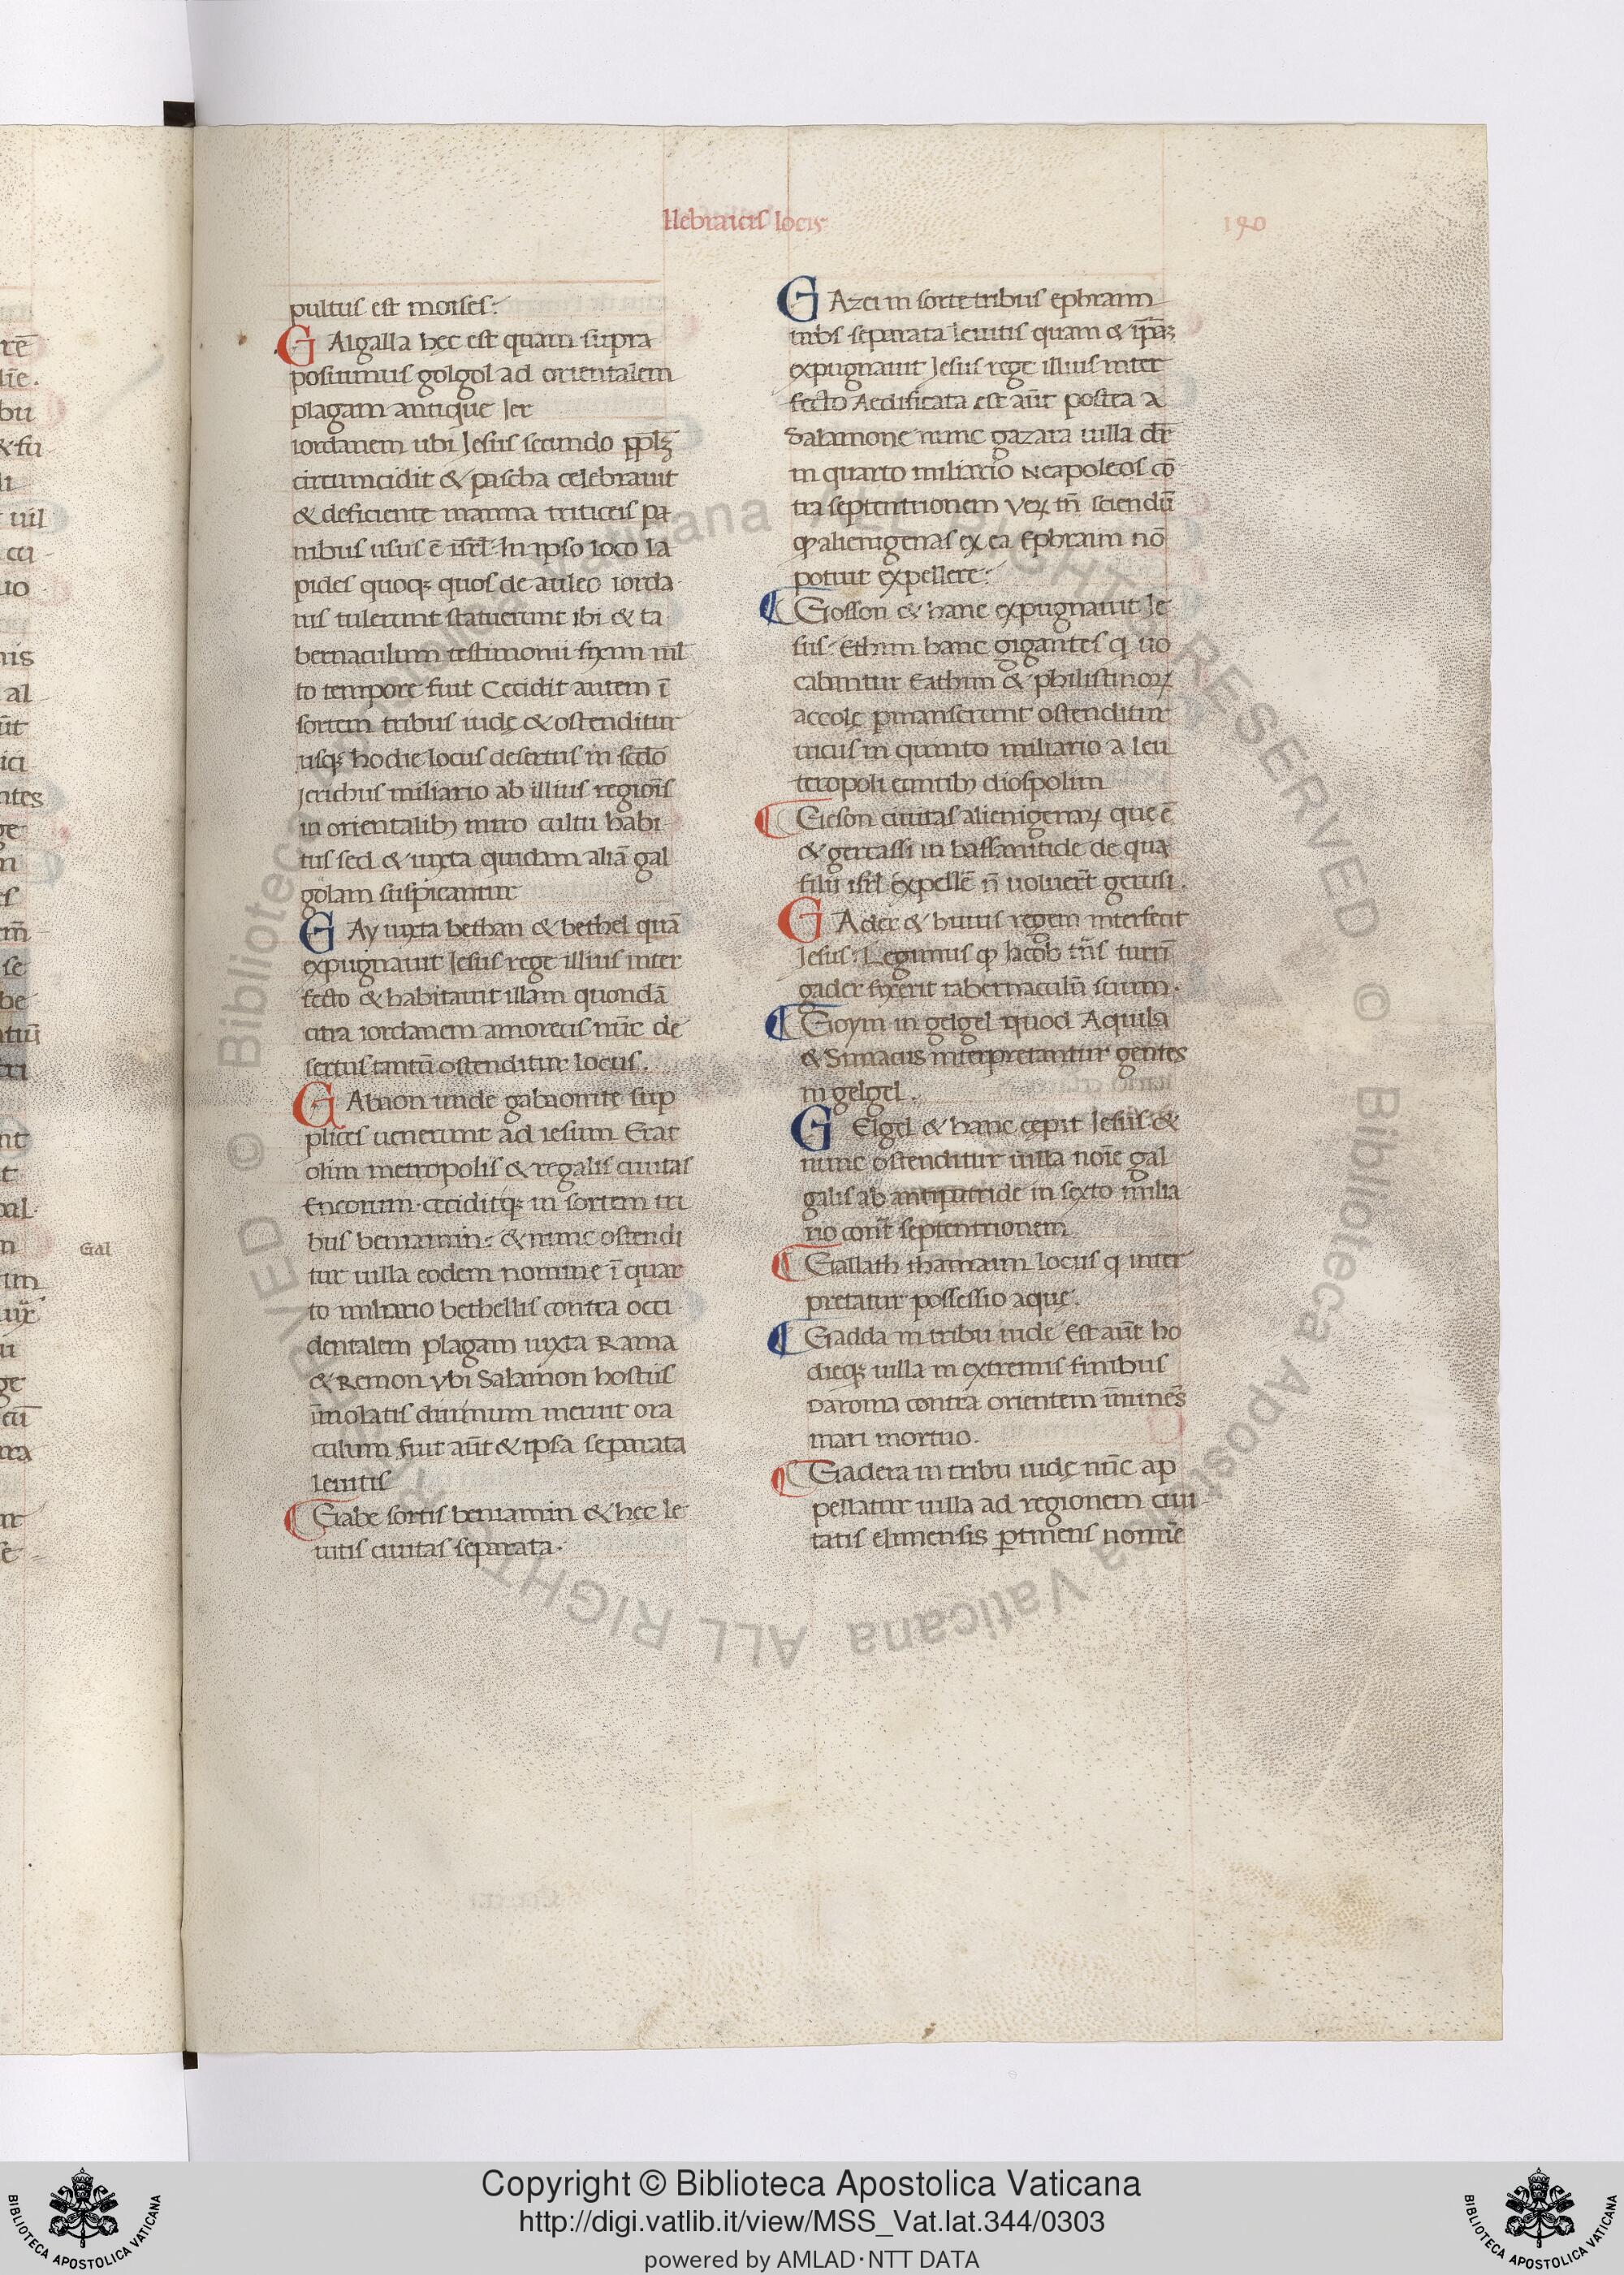 Hebraicis locis
190
pultus est moises:
GAlgalla hec est quam supra
posuimus golgol ad orientalem
plagam antique Jer
iordanem ubi Jesus secundo pplꝫ
circumcidit & pascha celebrauit
& deficiente manna triticeis pa
nibus usus ē isrl· In ipso loco la
pides quoqꝫ quos de auleo iorda
nis tulerunt statuerunt ibi & ta
bernaculum testimonii fixum ml
to tempore fuit Cecidit autem ī
sortem tribus iudę & ostenditur
usqꝫ hodie locus desertus in scdo
Jerichus miliario ab illius regiōis
in orientalibꝫ miro cultu habi
tus sed & iuxta quidam aliā gal
golam suspicantur
GAy iuxta bethan & bethel quā
expugnauit Jesus rege illius inter
fecto & habitauit illam quondā
citra iordanem amoreus nūc de
sertus tantū ostenditur locus.
GAbaon unde gabaonite sup
plices uenerunt ad iesum Erat
olim metropolis & regalis ciuitas
Eneorum· ceciditqꝫ in sortem tri
bus beniamin: & nunc ostendi
tur uilla eodem nomine ī quar
to miliario bethellis contra occi
dentalem plagam iuxta Rama
& Remon vbi Salamon hostiis
īmolatis diuinum meruit ora
culum fuit aūt & ipsa separata
leuitis
Gabe sortis beniamin & hec le
uitis ciuitas separata·
GAzer in sorte tribus ephraim
urbs separata leuitis quam & ip̄aꝫ
expugnauit Jesus rege illius inter
fecto Aedificata est aūt postea a
Salamone nunc gazara uilla dr̄
in quarto miliario Neapoleos cō
tra septentrionem Veꝝ tn̄ sciendū
ꝙ alienigenas ex ea Ephraim nō
potuit expellere:
Gosson & hanc expugnauit Je
sus· Ethim hanc gigantes q uo
cabantur Eathim & philistinoꝝ
accolę pmanserunt ostenditur
uicus in quinto miliario a leu
teropoli euntibꝫ diospolim
Geson ciuitas alienigenaꝝ que ē
& gercassi in bassanitide de qua
filii isrl expellē n̄ uoluert̄ gerusi.
GAder & huius regem interfecit
Jesus: Legimus ꝙ Jacob tn̄s turri
gader fixerit tabernaculū suum·
Goym in gelgel quod Aquila
& Simacus interpretantur gentes
in gelgel.
GElgel & hanc cepit Jesus· &
nunc ostenditur uilla noīe gal
galis ab antiputride in sexto milia
rio cont̄ septentrionem
Gallath thamaim locus q inter
pretatur possessio aquę.
Gadda in tribu iude Est aūt ho
dieqꝫ uilla in extremis finibus
Daroma contra orientem īminēs
mari mortuo.
Gadera in tribu iudę nūc ap
pellatur uilla ad regionem ciui
tatis eliniensis ꝑtinens nomīe
Gal
Copyright © Biblioteca Apostolica Vaticana
http://digi.vatlib.it/view/MSS_Vat.lat.344/0303
powered by AMLAD·NTT DATA
BIBLIOTECA APOSTOLICA VATICANA
BIBLIOTECA APOSTOLICA VATICANA